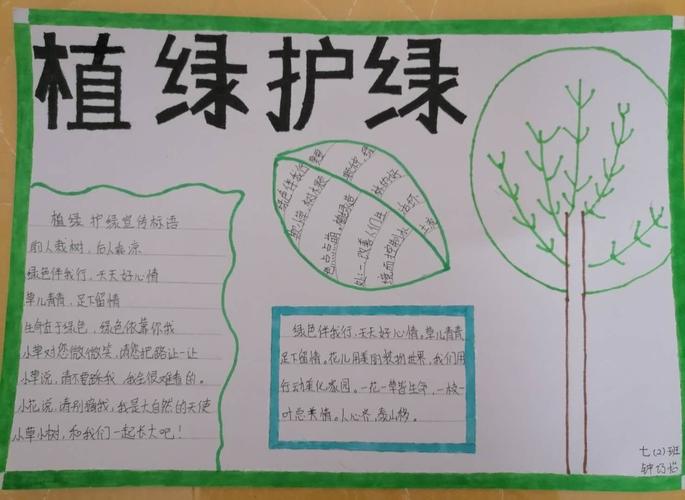 植绿护绿
植绿 护绿宣传标语
前人栽树，后人乘凉
绿色伴我行，天天好心情
草儿青青，足下留情
生命在于绿色，绿色依靠你我
小草对您微微笑，请您把路让一让
小草说，请不要踩我，我会很难看的。
小花说，请别摘我，我是大自然的天使
小草小树，和我们一起长大吧！
绿色伴我行，天天好心情。草儿青青
足下留情。花儿用美丽装扮世界，我们用
行动美化家园。一花一草皆生命，一枝
一叶总关情。人心齐，泰山移。
七(2)班